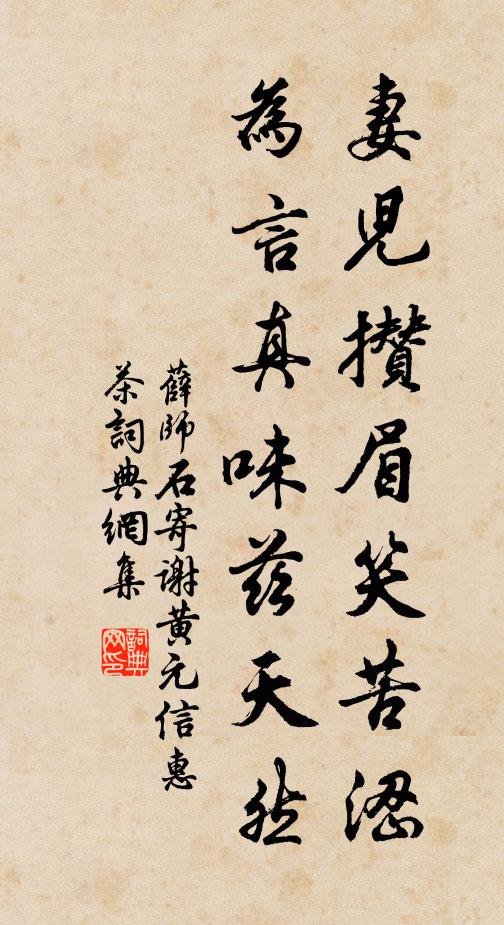 妻兒攢眉笑苦澀
為言真味茲天然
薛師石寄謝黃元信惠
茶詞典網集
詞典
网印